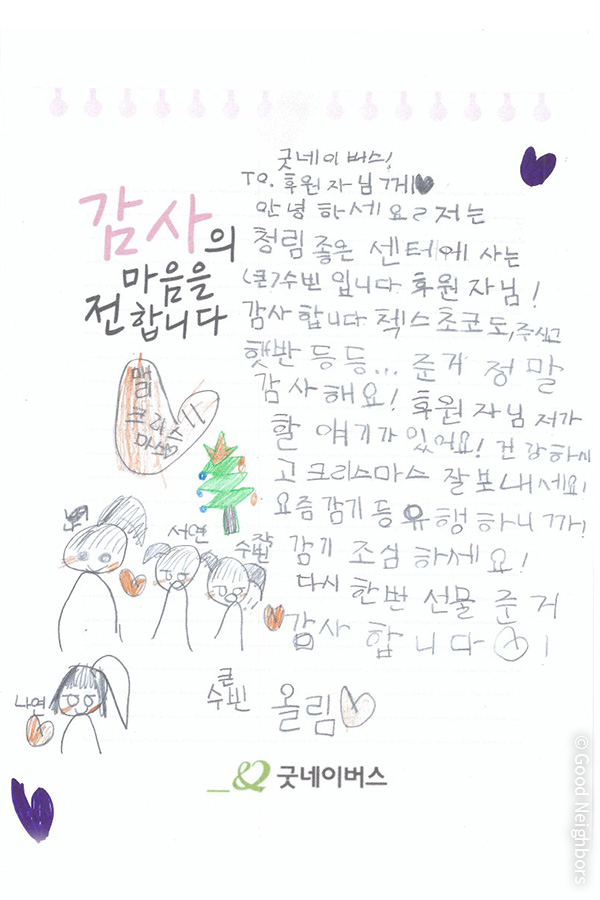 감사의
마음을
전합니다
굿네이버스!
To. 후원자님께♥
안녕하세요ㄹ 저는
청림좋은 센터에 사는
(큰)수빈입니다 후원자님!
감사합니다 첵스초코도, 주시고
햇반 등등... 준거 정말
감사해요! 후원자님 저가
할 얘기가 있어요! 건강하시
고 크리스마스 잘보내세요!
요즘 감기 등 유행하니까!
감기 조심 하세요!
다시 한번 선물 준거
감사 합니다!
큰
수빈 올림
메리
크리스
마스
서연
작
수빈
나연
굿네이버스
© Good Neighbors